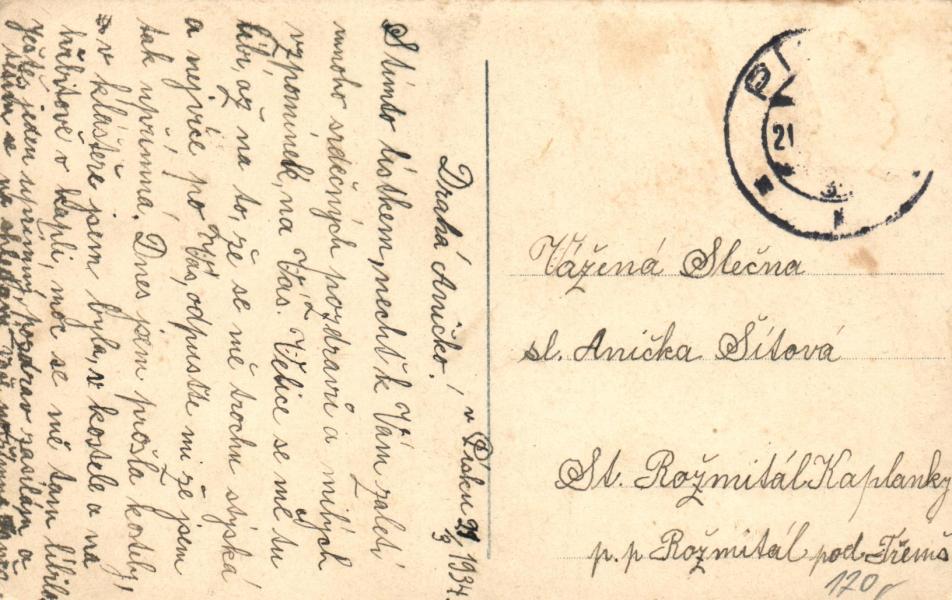 v Písku 21/9 1934.
Drahá Aničko!
Stímto lístkem, nechť k Vám zaletí
mnoho srdečných pozdravů a milých
vzpomínek, na Vás. Velice se mě tu
líbí, až na to, že se mě trochu stýská
a nejvíce po Vás, odpusťte mi že jsem
tak upřímná. Dnes jsem prošla kostely,
v klášteře jsem byla, v kostele a na
hřbitově v kapli, moc se mě tam líbilo
Ještě jeden upřímný pozdrav zasílám a
těším se na shledanou
PÍ
21
Vážená Slečna
sl. Anička Šítová
St. Rožmitál Kaplanky
p. p Rožmitál pod Třemš
120,